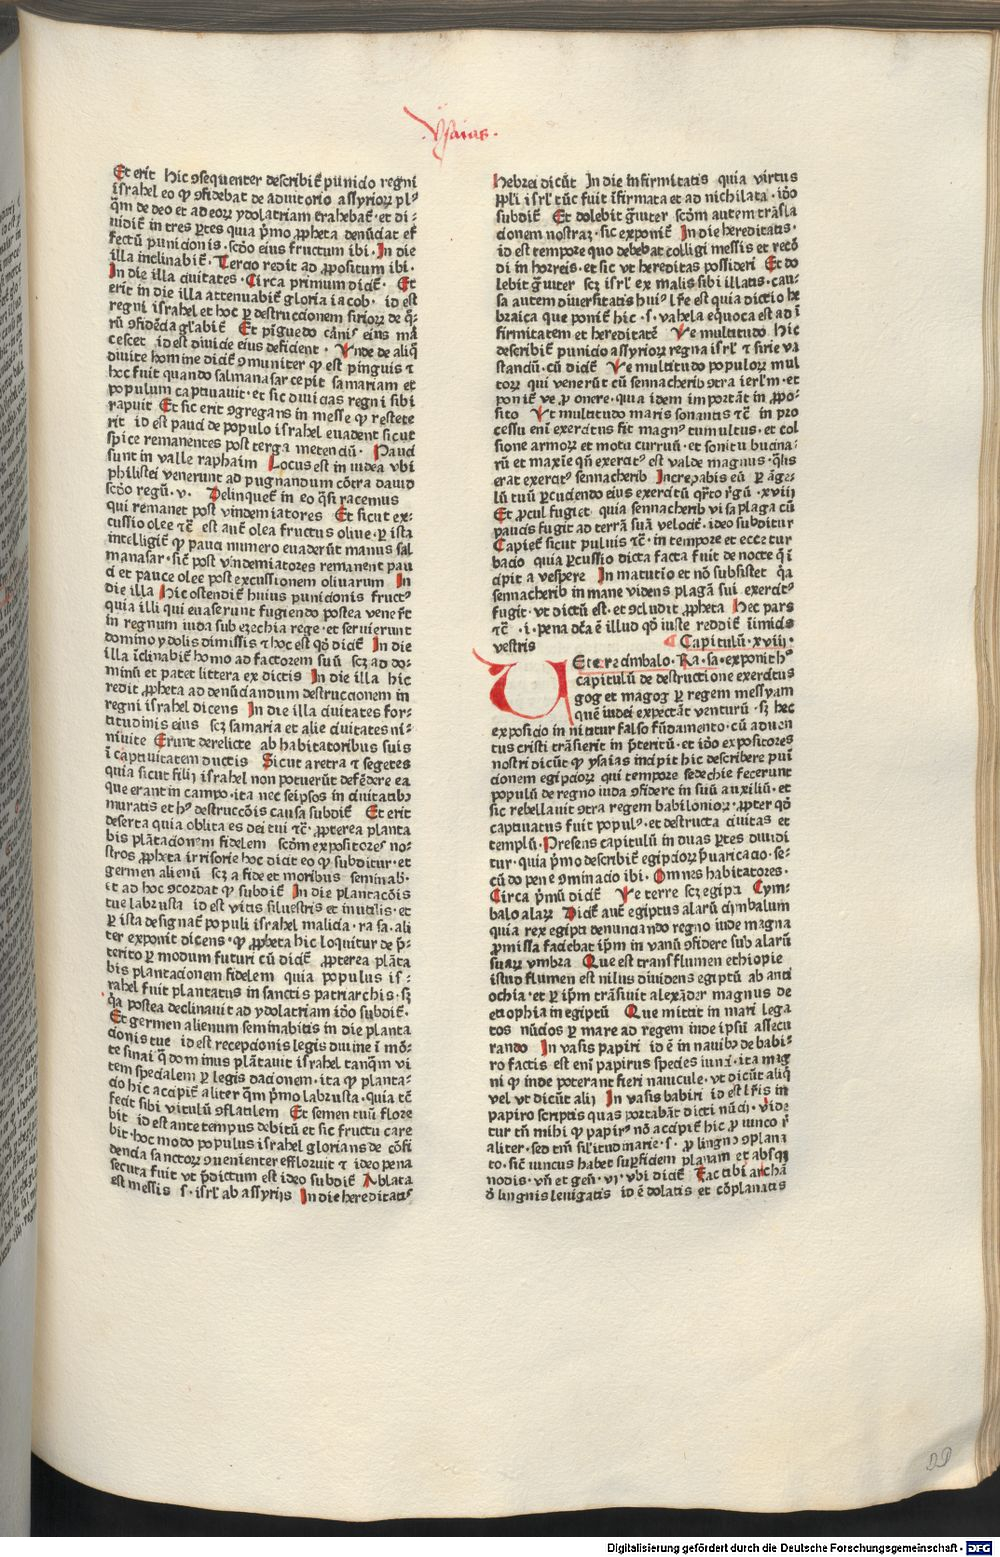 Ysaias.
Et erit hic ꝯsequenter describit̄ punicio regni
israhel eo ꝙ ꝯfidebat de adiutorio assyrioꝝ plꝰ
q̄m de deo et ad eoꝝ ydolatriam trahebat̄· et di⸗
uidit̄ in tres ꝑtes quia p̄mo ꝓpheta denūciat ef
fectū punicionis· scd̄o eius fructum ibi· In die
illa inclinabit̄· Tercio redit ad ꝓpositum ibi·
In die illa ciuitates· Circa primum dicit̄· Et
erit in die illa attenuabit̄ gloria iacob· id est
regni israhel et hoc ꝑ destruccionem sirioꝝ de q̄⸗
rū ꝯfidēcia gl'abit̄ Et pīguedo cānis eius mar
cescet id est diuicie eius deficient· Vnde de aliq̄
diuite homine dicit̄ ꝯmuniter ꝙ est pinguis ⁊
hoc fuit quando salmanasar cepit samariam et
populum captiuauit· et sic diuicias regni sibi
rapuit Et sic erit ꝯgregans in messe ꝙ restete
rit id est pauci de populo israhel euadent sicut
spice remanentes post terga metenciū· Pauci
sunt in valle raphaim Locus est in iudea vbi
philistei venerunt ad pugnandum cōtra dauid
scd̄o regū· v· Delinquet̄ in eo q̄si racemus
qui remanet post vindemiatores Et sicut ex⸗
cussio olee ⁊c̄ est aut̄ olea fructus oliue· ꝑ ista
intelligit̄ ꝙ pauci numero euaderūt manus sal
manasar· sic̄ post vindemiatores remanent pau
ci et pauce olee post excussionem oliuarum In
die illa Hic ostendit̄ huius punicionis fructꝰ
quia illi qui euaserunt fugiendo postea venert̄
in regnum iuda sub ezechia rege· et seruierunt
domino ydolis dimissis ⁊ hoc est qd̄ dicit̄ In die
illa īclinabit̄ homo ad factorem suū scꝫ ad do⸗
minū et patet littera ex dictis In die illa hic
redit ꝓpheta ad denūciandum destruccionem in
regni israhel dicens In die illa ciuitates for⸗
titudinis eius scꝫ samaria et alie ciuitates ni⸗
niuite Erunt derelicte ab habitatoribus suis
ī captiuitatem ductis Sicut aretra ⁊ segetes
quia sicut filij israhel non potuerūt defēdere ea
que erant in campo· ita nec seipsos in ciuitatibꝫ
muratis et hꝰ destruccōis causa subdit̄ Et erit
deserta quia oblita es dei tui ⁊c̄· ꝓpterea planta
bis plātacionem fidelem scd̄m expositores no⸗
stros ꝓpheta irrisorie hoc dicit eo ꝙ subditur· et
germen alienū scꝫ a fide et moribus seminab·
et ad hoc ꝯcordat ꝙ subdit̄ In die plantacōis
tue labrusta id est vitis siluestris et inutilis· et
ꝑ ista designat̄ populi israhel malicia· ra sa· ali
ter exponit dicens· ꝙ ꝓpheta hic loquitur de p̄⸗
terito ꝑ modum futuri cū dicit̄ ꝓpterea plāta
bis plantacionem fidelem quia populus is⸗
rahel fuit plantatus in sanctis patriarchis· sꝫ
q̄a postea declinauit ad ydolatriam id̄o subdit̄·
Et germen alienum seminabitis in die planta
cionis tue id est recepcionis legis diuine ī mō⸗
te sinai q̄ dominus plātauit israhel tanq̄m vi
tem specialem ꝑ legis dacionem· ita ꝙ planta⸗
cio hic accipit̄ aliter q̄m p̄mo labrusta· quia tc̄
fecit sibi vitulū ꝯflatilem Et semen tuū flore
bit id est ante tempus debitū et sic fructu care
bit· hoc modo populus israhel glorians de cōfi
dencia sanctoꝝ ꝯuenienter effloruit ⁊ ideo pena
secuta fuit vt p̄dictum est ideo subdit̄ Ablata
est messis s· isrl' ab assyrijs In die hereditatꝭ
hebrei dicūt In die infirmitatis quia virtus
ppl'i isrl' tūc fuit īfirmata et ad nichilata· id̄o
subdit̄ Et dolebit g̈uiter scd̄m autem trāsla
cionem nostraꝫ· sic exponit̄ In die hereditatis·
id est tempore quo debebat colligi messis et recō
di in horreis· et sic vt hereditas possideri Et do
lebit g̈uiter scꝫ isrl' ex malis sibi illatis· cau⸗
sa autem diuersitatis huiꝰ lr̄e est quia dictio he
braica que ponit̄ hic· s· vahela equoca est ad ī
firmitatem et hereditatē Ve multitudo Hic
describit̄ punicio assyrioꝝ regna isrl' ⁊ sirie va
stanciū· cū dicit̄ Ve multitudo populoꝝ mul
toꝝ qui venerūt cū sennacherib ꝯtra ierl'm· et
ponit̄ ve ꝓ onere· quia idem importāt in ꝓpo⸗
sito Vt multitudo maris sonantis ⁊c̄ in pro
cessu enī exercitus fit magnꝰ tumultus· et col
lisione armoꝝ et motu curruū· et sonitu bucina⸗
rū et maxīe qn̄ exercitꝰ est valde magnus· q̄lis
erat exercitꝰ sennacherib Increpabis eū ꝑ āge⸗
lū tuū ꝑcuciendo eius exercitū qr̄to r̄gū· xviij
Et ꝓcul fugiet quia sennacherib visa plaga cū
paucis fugit ad terrā suā velocit̄· ideo subditur
Capiet̄ sicut puluis ⁊c̄· in tempore et ecce tur
bacio quia ꝑcussio dicta facta fuit de nocte q̄ ī
cipit a vespere In matutīo et nō subsistet q̄a
sennacherib in mane videns plagā sui exercitꝰ
fugit· vt dictū est· et ꝯcludit ꝓpheta Hec pars
⁊c̄ ·i· pena dc̄a ē illud qd̄ iuste reddit̄ īimicis
vestris ¶ Capitulū· xviij·
Ve terre cimbalo· Ra· sa· exponit hꝰ
capitulū de destructione exercitus
gog et magog ꝑ regem messyam
quē iudei expectāt venturū· sꝫ hec
exposicio innititur falso fūdamento· cū aduen
tus cristi trāsierit in p̄teritū· et id̄o expositores
nostri dicūt ꝙ ysaias incipit hic describere puī
cionem egipcioꝝ qui tempore sedechie fecerunt
populū de regno iuda ꝯfidere in suū auxiliū· et
sic rebellauit ꝯtra regem babilonioꝝ· ꝓpter qd̄
captiuatus fuit populꝰ· et destructa ciuitas et
templū· Presens capitulū in duas ꝑtes diuidi
tur· quia p̄mo describit̄ egipcioꝝ p̄uaricacio· se⸗
cūdo pene ꝯminacio ibi· Omnes habitatores·
Circa p̄mū dicit̄ Ve terre scꝫ egipti Cym⸗
balo alaꝝ Dicit̄ aut̄ egiptus alarū cimbalum
quia rex egipti denunciando regno iude magna
ꝓmissa faciebat ip̄m in vanū ꝯfidere sub alarū
suaꝝ vmbra Que est trans flumen ethiopie
istud flumen est nilus diuidens egiptū ab anti
ochia· et ꝑ ip̄m trāsiuit alexāder magnus de
ethiophia in egiptū Que mittit in mari lega
tos nūcios ꝑ mare ad regem inde ipsū assecu
rando In vasis papiri id ē in nauibꝫ de babi⸗
ro factis est enī papirus species iunci· ita mag
ni ꝙ inde poterant fieri nauicule· vt dicūt aliq̄
vel vt dicūt alij In vasis babiri id est lr̄is in
papiro scriptis quas portabāt dicti nūcij· vide
tur tn̄ mihi ꝙ papirꝰ nō accipit̄ hic ꝓ iunco r̄
aliter· sed tm̄ sil'itudinarie· s· ꝓ lingno ꝯplana
to· sic̄ iuncus habet suꝑficiem planam et absqꝫ
nodis· vn̄ et gen̄· vj· vbi dicit̄ Fac tibi archā
d̄ lingnis leuigatis id ē dolatis et cōplanatis
Digitalisierung gefördert durch die Deutsche Forschungsgemeinschaft - DFG